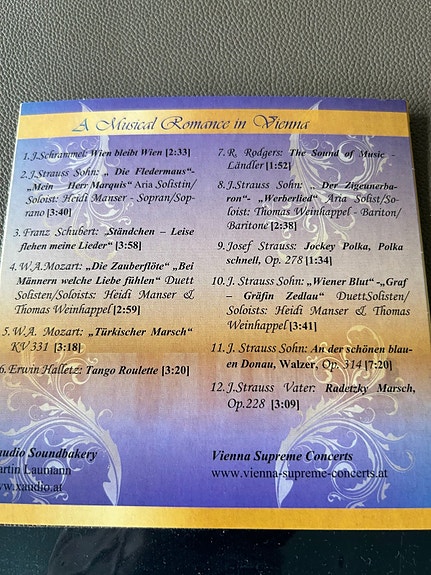 A Musical Romance in Vienna
1. J.Schrammel: Wien bleibt Wien [2:33]
2. J.Strauss Sohn: „ Die Fledermaus"-
„Mein Herr Marquis" Aria Solistin/
Soloist: Heidi Manser - Sopran/Sop-
rano [3:40]
3. Franz Schubert: „Ständchen – Leise
flehen meine Lieder" [3:58]
4. W.A.Mozart: „Die Zauberflöte" „Bei
Männern welche Liebe fühlen" Duett
Solisten/Soloists: Heidi Manser &
Thomas Weinhappel [2:59]
5. W.A. Mozart: „Türkischer Marsch"
KV 331 [3:18]
6. Erwin Halletz: Tango Roulette [3:20]
7. R. Rodgers: The Sound of Music -
Ländler [1:52]
8. J.Strauss Sohn: „ Der Zigeunerba-
ron"- „Werberlied" Aria Solist/So-
loist: Thomas Weinhappel - Bariton/
Baritone [2:38]
9. Josef Strauss: Jockey Polka, Polka
schnell, Op. 278 [1:34]
10. J. Strauss Sohn: „Wiener Blut" -„Graf
– Gräfin Zedlau" DuettSolisten/
Soloists: Heidi Manser & Thomas
Weinhappel [3:41]
11. J. Strauss Sohn: An der schönen blau-
en Donau, Walzer, Op. 314 [7:20]
12. J.Strauss Vater: Radetzky Marsch,
Op.228 [3:09]
audio Soundbakery
artin Laumann
w.xaudio.at
Vienna Supreme Concerts
www.vienna-supreme-concerts.at